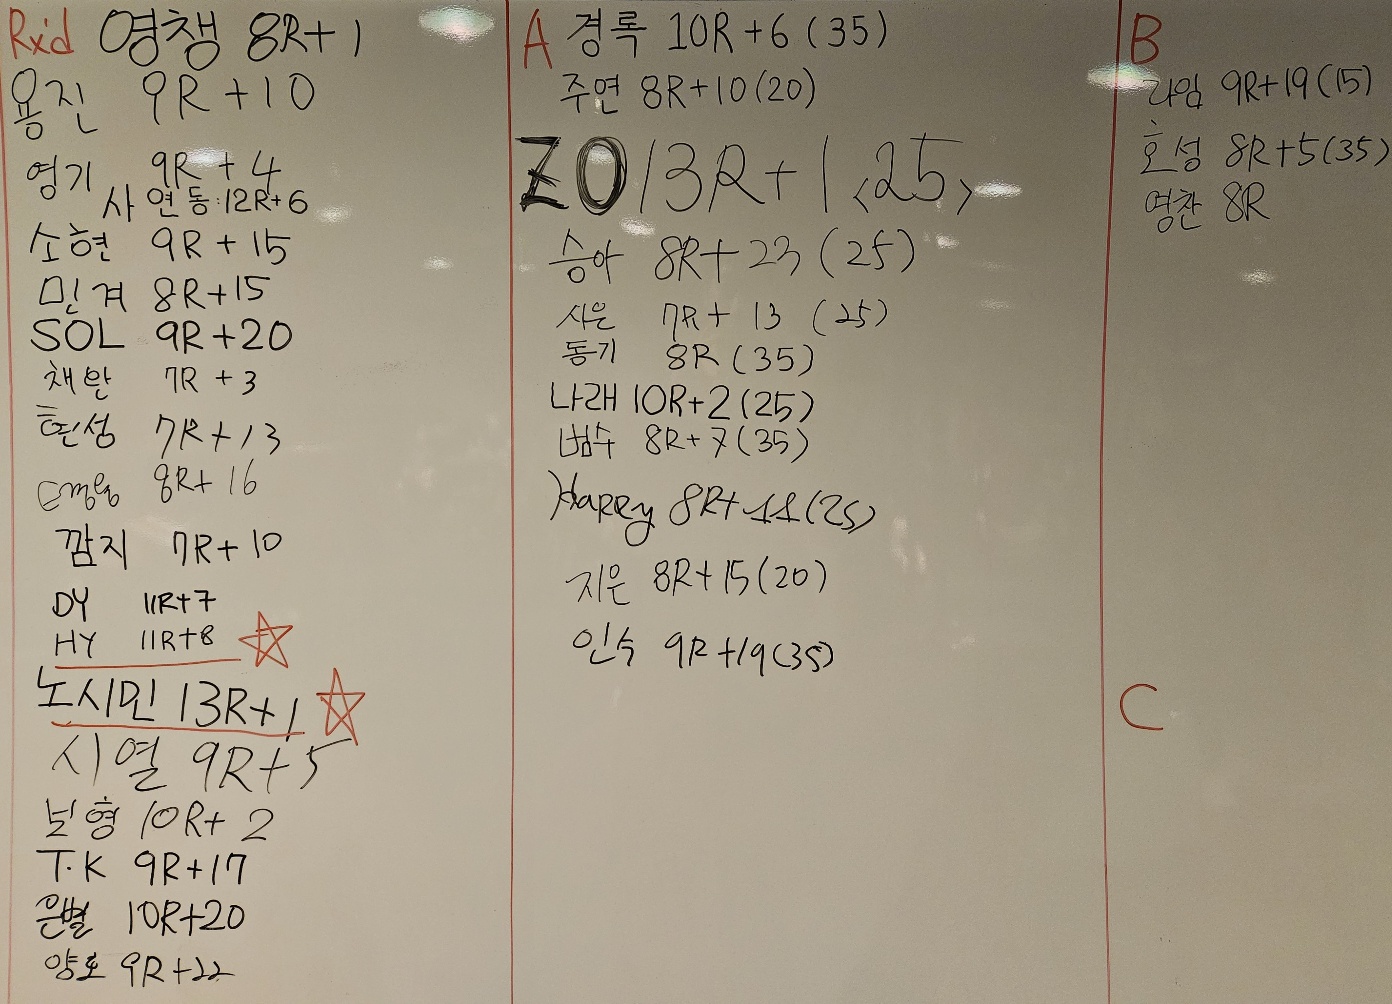 Rxd 영챙 8R+1
용진 9R+10
영기 9R+4
사 연동:12R+6
소현 9R+15
민겨 8R+15
SOL 9R+20
채완 7R+3
현성 7R+13
8R+16
깜지 7R+10
DY 11R+7
HY 11R+8
노시민 13R+1
시열 9R+5
보형 10R+2
T.K 9R+17
은별 10R+20
양호 9R+22
A 경록 10R+6(35)
주연 8R+10(20)
ZO 13R+1<25>
승아 8R+23(25)
시은 7R+13(25)
동기 8R(35)
나래 10R+2(25)
범수 8R+7(35)
Happy 8R+11(25)
지은 8R+15(20)
인숙 9R+19(35)
B
라임 9R+19(15)
호성 8R+5(35)
영찬 8R
C